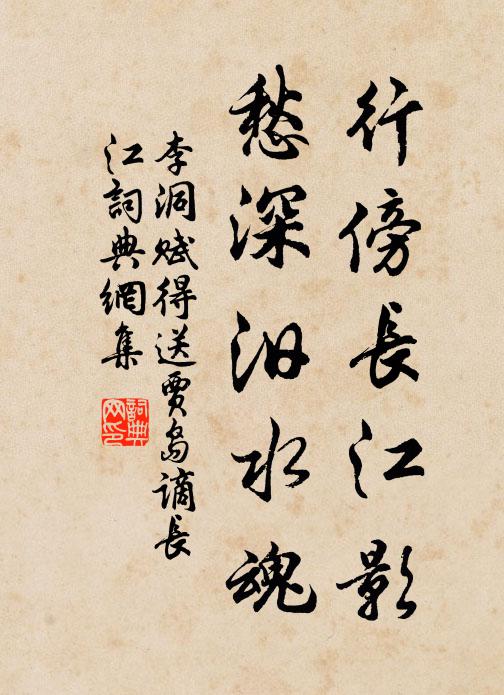 行傍長江影
愁深汨水魂
李洞賦得送賈島謫長
江詞典網集
詞典网印